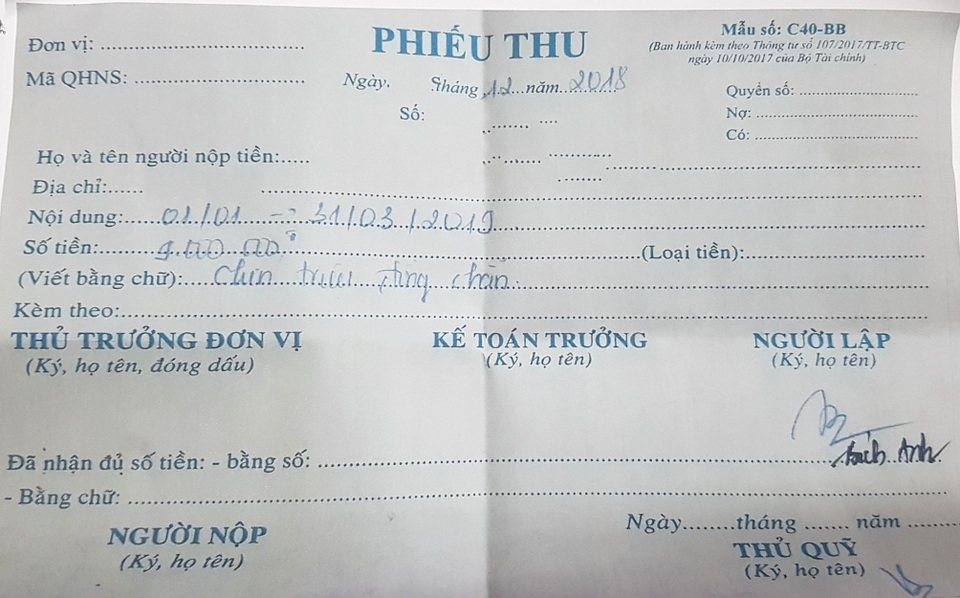 PHIẾU THU
Mẫu số: C40-BB
(Ban hành kèm theo Thông tư số 107/2017/TT-BTC
ngày 10/10/2017 của Bộ Tài chính)
Đơn vị: ................................
Mã QHNS: ................................
Ngày. Tháng 12 năm 2018
Số:
Quyển số: ................................
Nợ: ................................
Có: ................................
Họ và tên người nộp tiền:.....
Địa chỉ:......
Nội dung: 01/01 -> 31/03/2019
Số tiền: 9.000.000đ (Loại tiền):
(Viết bằng chữ): Chín triệu đồng chẵn
Kèm theo:
THỦ TRƯỞNG ĐƠN VỊ KẾ TOÁN TRƯỞNG NGƯỜI LẬP
(Ký, họ tên, đóng dấu) (Ký, họ tên) (Ký, họ tên)
Bích Anh
Đã nhận đủ số tiền: - bằng số:
- Bằng chữ:
Ngày........tháng ....... năm ........
NGƯỜI NỘP THỦ QUỸ
(Ký, họ tên) (Ký, họ tên)